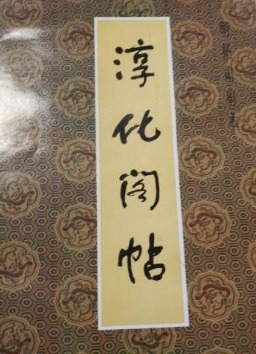 淳化阁帖